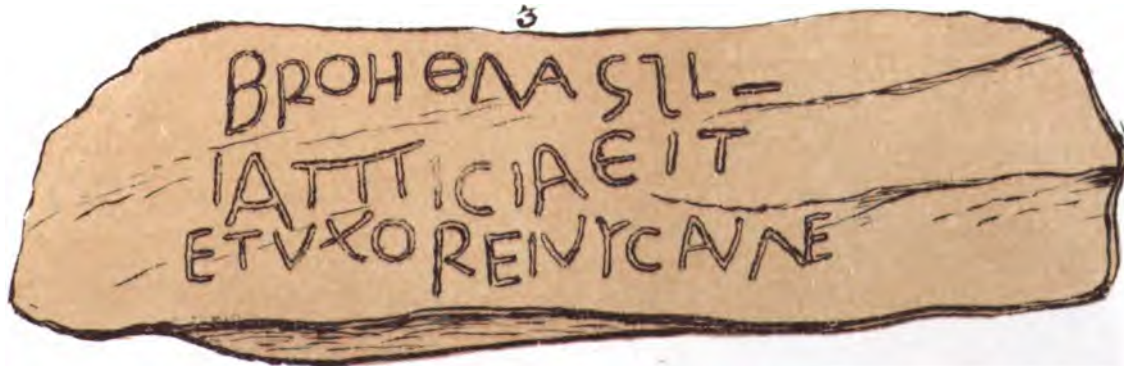 3
BROHΘMA SʅI–
IATTT ICIAЄIT
ETVXOREIVYCAVNE